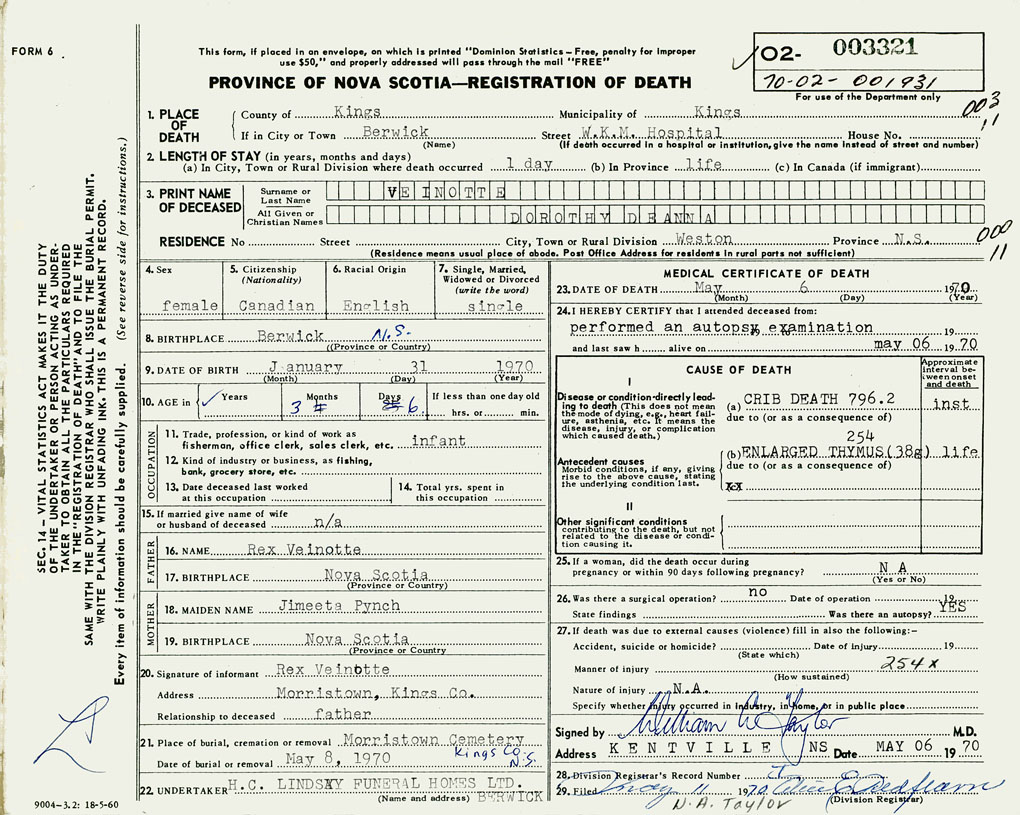 FORM 6
This form, if placed in an envelope, on which is printed "Dominion Statistics – Free, penalty for improper
use $50," and properly addressed will pass through the mail "FREE"
PROVINCE OF NOVA SCOTIA—REGISTRATION OF DEATH
02- 003321
70-02-001931
For use of the Department only
003
11
1. PLACE OF DEATH
County of Kings Municipality of Kings
If in City or Town Berwick Street W.K.M. Hospital House No.
(Name) (If death occurred in a hospital or institution, give the name instead of street and number)
2. LENGTH OF STAY (in years, months and days)
(a) In City, Town or Rural Division where death occurred 1 day (b) In Province life (c) In Canada (if immigrant)
3. PRINT NAME OF DECEASED
Surname or Last Name VEINOTTE
All Given or Christian Names DOROTHY DEANNA
RESIDENCE No Street City, Town or Rural Division Weston Province N.S.
(Residence means usual place of abode. Post Office Address for residents in rural parts not sufficient)
000
11
4. Sex
female
5. Citizenship
(Nationality)
Canadian
6. Racial Origin
English
7. Single, Married,
Widowed or Divorced
(write the word)
single
8. BIRTHPLACE Berwick N.S.
((Province or Country)
9. DATE OF BIRTH January 31 1970
(Month) (Day) (Year)
10. AGE in Years Months Days If less than one day old
3 6 hrs. or min.
OCCUPATION
11. Trade, profession, or kind of work as
fisherman, office clerk, sales clerk, etc. infant
12. Kind of industry or business, as fishing,
bank, grocery store, etc.
13. Date deceased last worked
at this occupation
14. Total yrs. spent in
this occupation
15. If married give name of wife
or husband of deceased n/a
FATHER
16. NAME Rex Veinotte
17. BIRTHPLACE Nova Scotia
(Province or Country)
MOTHER
18. MAIDEN NAME Jimeeta Pynch
19. BIRTHPLACE Nova Scotia
(Province or Country
20. Signature of informant Rex Veinotte
Address Morristown, Kings Co.
Relationship to deceased father
21. Place of burial, cremation or removal Morristown Cemetery
Kings Co.
N.S.
Date of burial or removal May 8, 1970
22. UNDERTAKER H.C. LINDSAY FUNERAL HOMES LTD.
(Name and address) BERWICK
MEDICAL CERTIFICATE OF DEATH
23. DATE OF DEATH May 6 1970
(Month) (Day) (Year)
24. I HEREBY CERTIFY that I attended deceased from:
performed an autopsy examination 19
and last saw h alive on may 06 19 70
CAUSE OF DEATH
Approximate interval between onset and death
I
Disease or condition-directly leading to death (This does not mean the mode of dying, e.g., heart failure, asthenia, etc. It means the disease, injury, or complication which caused death.)
(a) CRIB DEATH 796.2 inst
due to (or as a consequence of)
254
Antecedent causes
Morbid conditions, if any, giving rise to the above cause, stating the underlying condition last.
(b) ENLARGED THYMUS(38g) life
due to (or as a consequence of)
II
Other significant conditions
contributing to the death, but not related to the disease or condition causing it.
25. If a woman, did the death occur during
pregnancy or within 90 days following pregnancy? N A
(Yes or No)
26. Was there a surgical operation? no Date of operation 19
State findings Was there an autopsy? YES
27. If death was due to external causes (violence) fill in also the following:–
Accident, suicide or homicide? Date of injury 19
(State which)
Manner of injury 254x
(How sustained)
Nature of injury N.A.
Specify whether injury occurred in industry, in home, or in public place
Signed by William Taylor M.D.
Address KENTVILLE NS Date MAY 06 19 70
28. Division Registrar's Record Number
29. Filed May 11 1970
N.A. Taylor (Division Registrar)
SEC. 14 – VITAL STATISTICS ACT MAKES IT THE DUTY
OF THE UNDERTAKER OR PERSON ACTING AS UNDER-
TAKER TO OBTAIN ALL THE PARTICULARS REQUIRED
IN THE "REGISTRATION OF DEATH" AND TO FILE THE
SAME WITH THE DIVISION REGISTRAR WHO SHALL ISSUE THE BURIAL PERMIT.
WRITE PLAINLY WITH UNFADING INK. THIS IS A PERMANENT RECORD.
Every item of information should be carefully supplied. (See reverse side for instructions.)
9004-3.2: 18-5-60